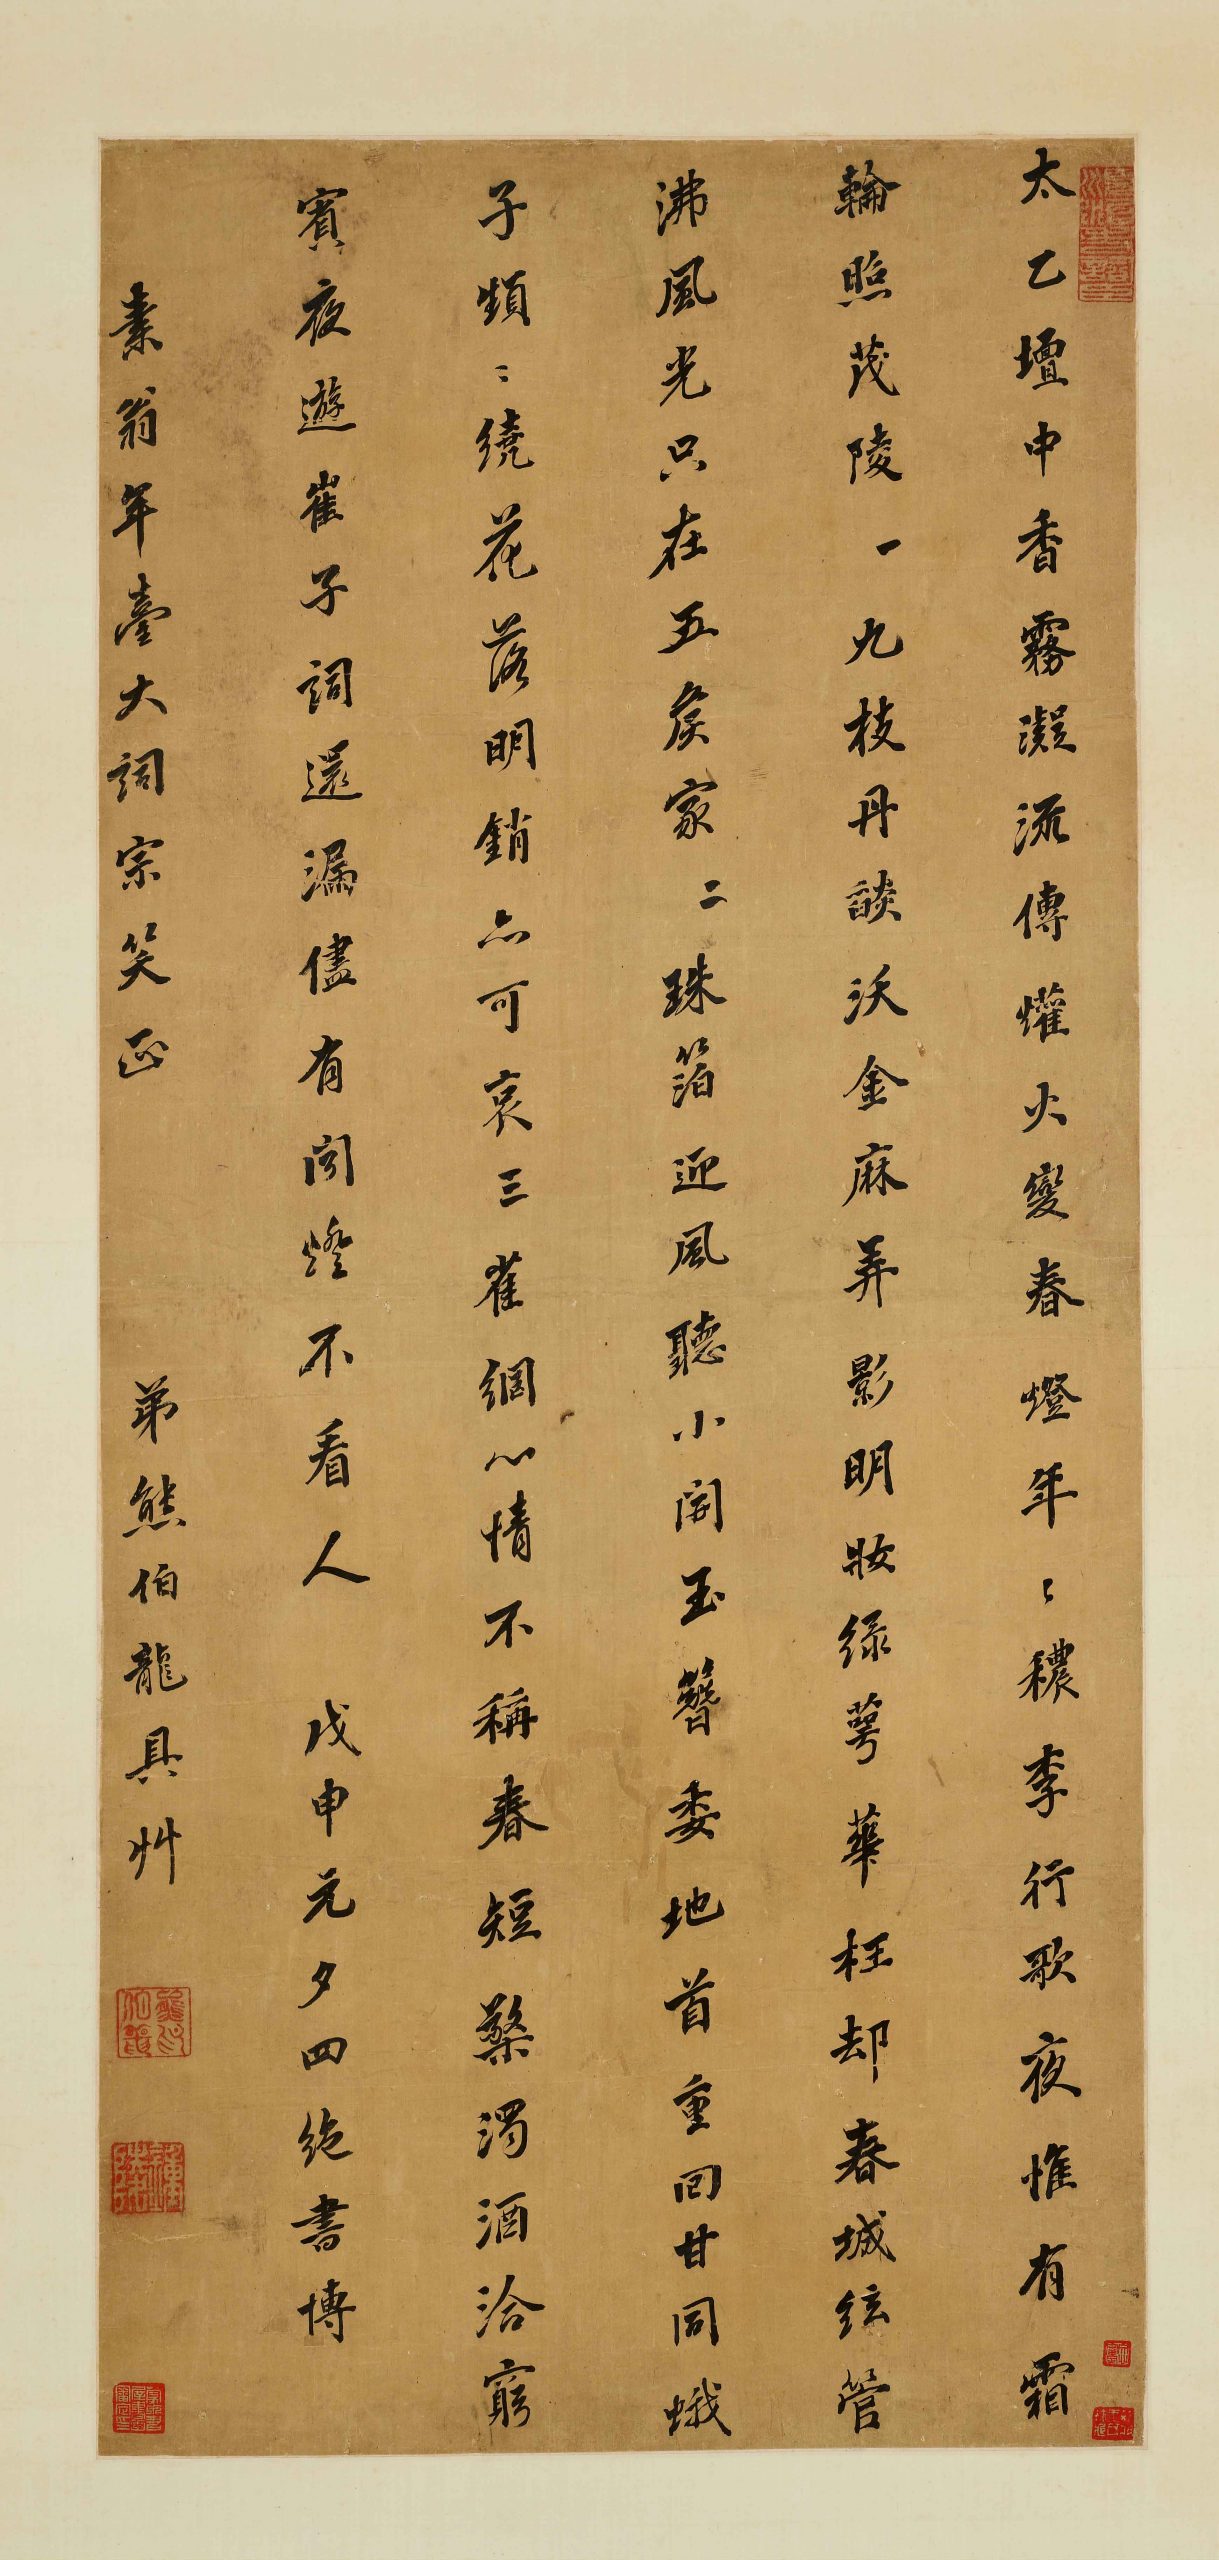 太乙壇中香霧凝流傳爟火變春燈年〻穠李行歌夜惟有霜
輪照茂陵一九枝丹燄沃金麻弄影明妝綠萼華枉却春城絃管
沸風光只在五矦家二珠箔迎風聽小開玉簪委地首重回甘同蛾
子頻〻繞花落明銷亦可哀三雀網心情不稱春短檠濁酒洽窮
賓夜遊崔子詞還漏儘有閑燈不看人 戊申元夕四絕書博
素翁年臺大詞宗笑正
弟熊伯龍具艸